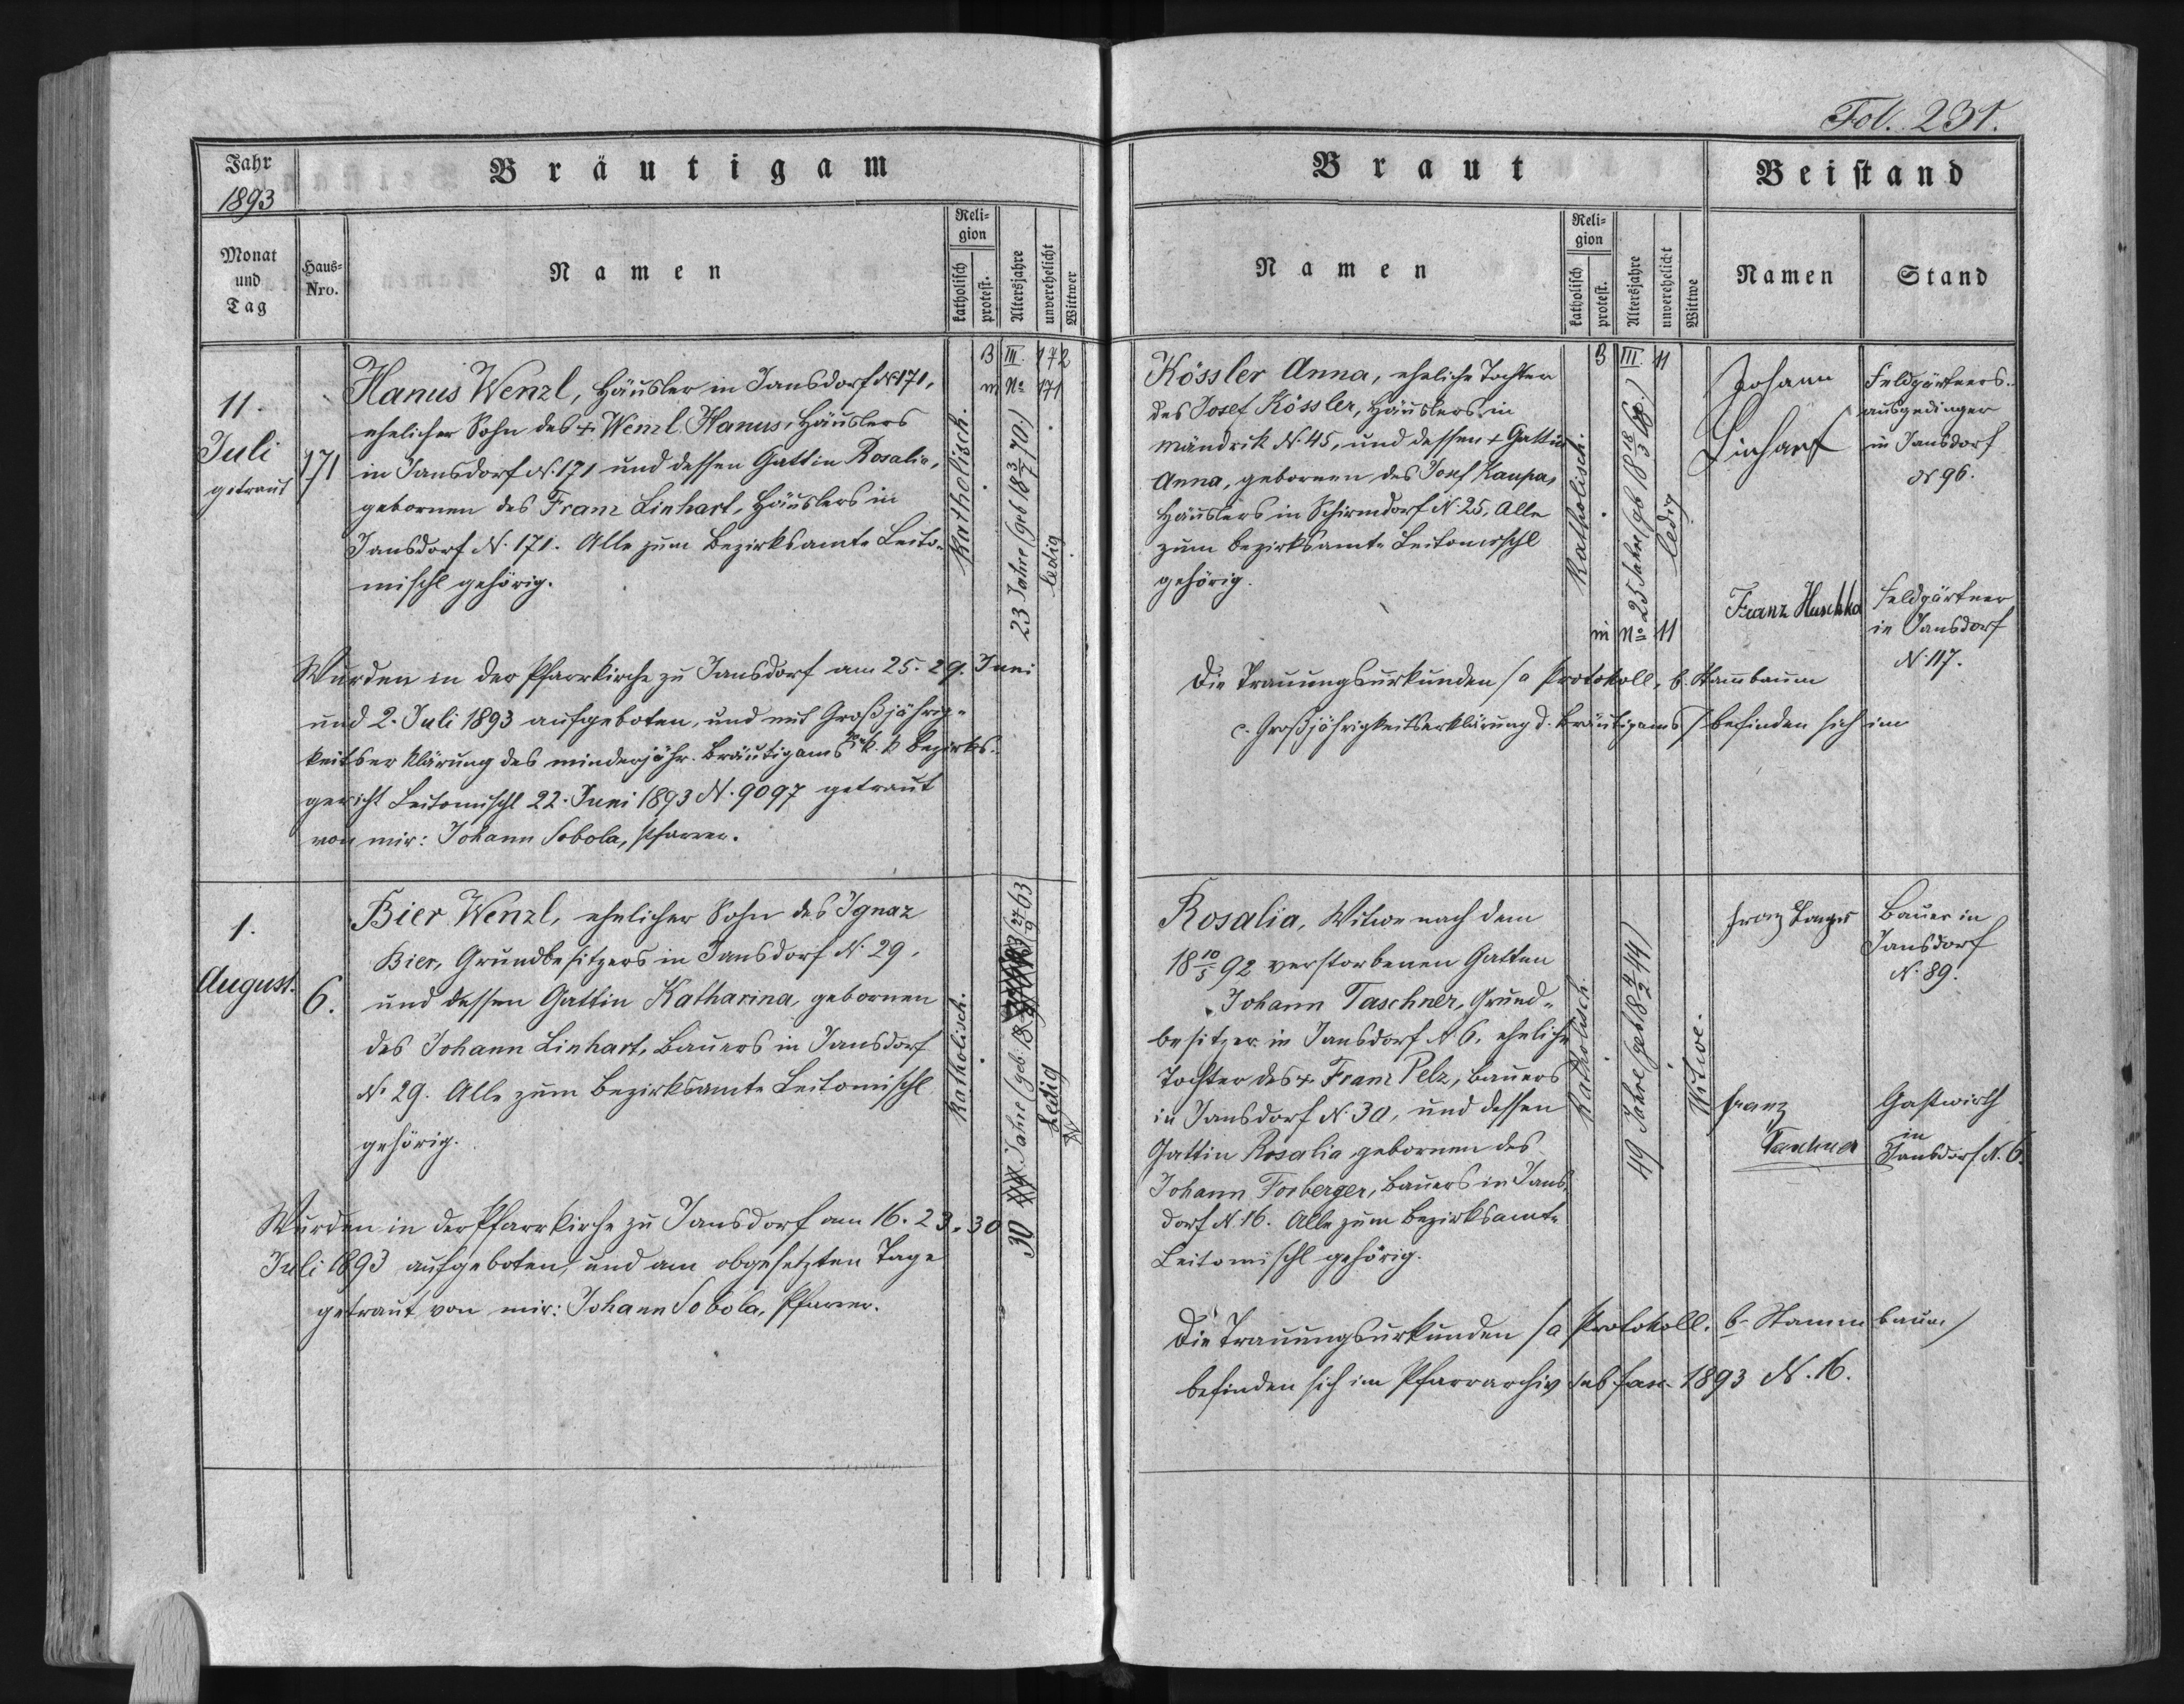 Fol. 231.
Jahr
1893
Bräutigam
Monat
und
Tag
Haus-
Nro.
Namen
Reli-
gion
katholisch
protest.
Altersjahre
unverehelicht
Wittwer
11.
Juli
getraut
171
Hanus Wenzl, Häusler in Jansdorf N. 171,
ehelicher Sohn des + Wenzl Hanus, Häuslers
in Jansdorf N. 171 und dessen Gattin Rosalia,
gebornen des Franz Linhart, Häuslers in
Jansdorf N. 171. Alle zum Bezirksamte Leito-
mischl gehörig.
Katholisch.
B III. 172
m No 171
23 Jahre (geb 18 3/7 70)
ledig
Wurden in der Pfarrkirche zu Jansdorf am 25. 29. Juni
und 2. Juli 1893 aufgeboten, und mit Großjährig-
keitserklärung des minderjähr. Bräutigams k. k. Bezirks-
gericht Leitomischl 22. Juni 1893 N. 9097 getraut
von mir: Johann Sobola, Pfarrer.
1.
August.
6.
Bier Wenzl, ehelicher Sohn des Ignaz
Bier, Grundbesitzers in Jansdorf N. 29,
und dessen Gattin Katharina, gebornen
des Johann Linhart, Bauers in Jansdorf
N. 29. Alle zum Bezirksamte Leitomischl
gehörig.
Katholisch.
30 Jahre (geb. 18 27/9 63
Ledig
Wurden in der Pfarrkirche zu Jansdorf am 16. 23. 30
Juli 1893 aufgeboten, und am obgesetzten Tage
getraut von mir: Johann Sobola, Pfarrer.
Braut
Namen
Reli-
gion
katholisch
protest.
Altersjahre
unverehelicht
Wittwe
Beistand
Namen
Stand
Kössler Anna, eheliche Tochter
des Josef Kössler, Häuslers in
Mändrik N. 45, und dessen + Gattin
Anna, gebornen des Josef Kaupa,
Häuslers in Schirmdorf N. 25. Alle
zum Bezirksamte Leitomischl
gehörig.
Katholisch.
B III. 11
25 Jahre (geb 18 18/3 68)
ledig
m No 11
Johann
Linhart
Feldgärtners-
ausgedinger
in Jansdorf
N 96.
Franz Huschka
Feldgärtner
in Jansdorf
N. 117.
Die Trauungsurkunden /a Protokoll, b. Stammbaum
c. Großjährigkeitserklärung d. Bräutigams / befinden sich im
Rosalia, Witwe nach dem
18 10/5 92 verstorbenen Gatten
Johann Taschner, Grund-
besitzer in Jansdorf N 6, eheliche
Tochter des + Franz Pelz, Bauers
in Jansdorf N. 30, und dessen
Gattin Rosalia gebornen des
Johann Forberger, Bauers in Jans-
dorf N. 16. Alle zum Bezirksamte
Leitomischl gehörig.
Katholisch.
49 Jahre (geb 18 4/2 44)
Witwe.
Franz
Bauer in
Jansdorf
N. 89.
Franz
Taschner
Gastwirth
in
Jansdorf N. 6.
Die Trauungsurkunden /a Protokoll. b. Stammbaum/
befinden sich im Pfarrarchiv sub fasc. 1893 N. 16.